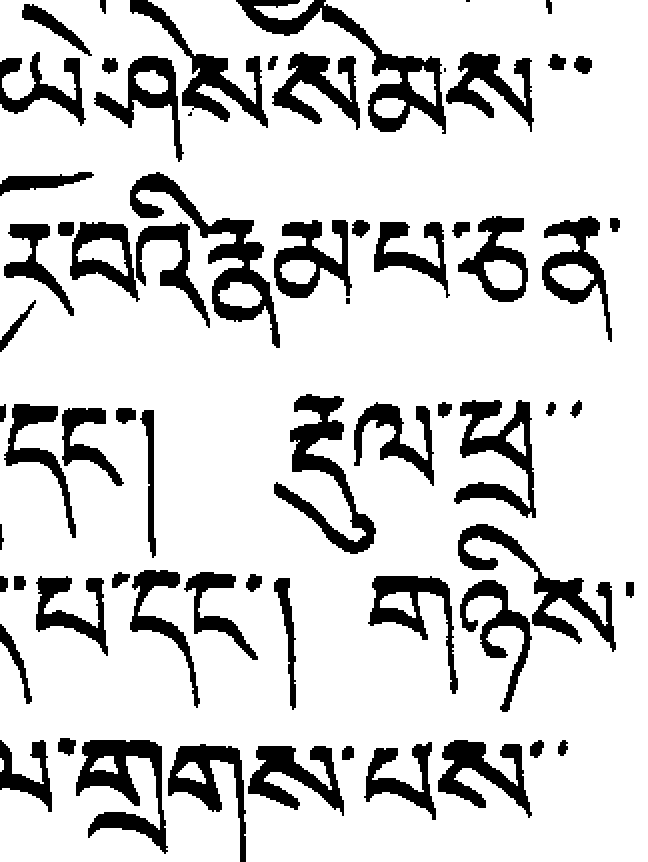 ཡེ་ཤེས་སེམས་་
ར་བའི་རྣམ་པ་ཅན་
དང་། རྡུལ་ཕྲ་་
པ་དང་། གཉིས་
གྲགས་པས་་